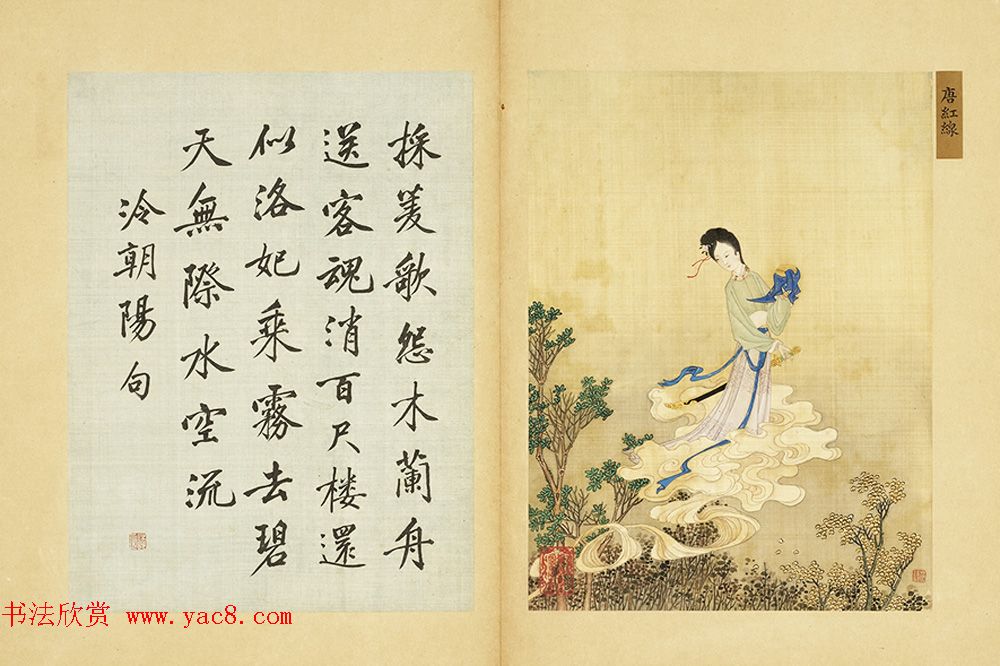 唐紅線
採菱歌怨木蘭舟
送客魂消百尺楼還
似洛妃乘霧去碧
天無際水空流
冷朝陽句
书法欣赏 www.yac8.com